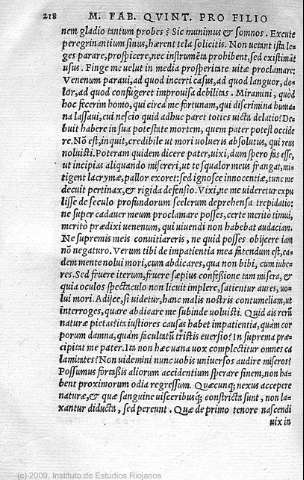 218 M. FAB. QVINT. PRO FILIO
nem gladio tantum probes? Sic manimus & somnos. Excute
peregrinantium sinus, harent tela solicitis. Non uetant ista le-
ges parare, prospicere, nec instrumēta prohibent, sed existimāt
usus. Finge me uelut in media prosperitate uitæ proclamare:
Venenum paraui, ad quod incerti casus, ad quod languor, do-
lor, ad quod confugeret improuisa debilitas. Miramini, quod
hoc fecerim homo, qui circa me fortunam, qui discrimina huma
na lassaui, cui nescio quid adhuc paret toties uicta delatio? De
buit habere in sua potestate mortem, quem pater potest occide
re. Nō est, inquit, credibile ut mori uolueris absolutus, qui reus
noluisti. Poteram quidem dicere pater, uixi, dum spero fås esse,
ut incipias aliquando misereri, ut te squalor meus frangat, mi-
tigent lacrymæ, pallor exoret: sed ignosce innocentiæ, tunc me
decuit pertinax, & rigida defensio. Vixi, ne me uideretur expu
lisse de seculo profundorum scelerum deprehensa trepidatio:
ne super cadauer meum proclamare posses, certe merito timui,
merito prædixi uenenum, qui uiuendi non habebat audaciam.
Ne supremis meis conuitiareris, ne quid posses obijcere iam
nō negaturo. Verum tibi de impatientia mea fatendum est, ea-
dem mente nolui mori, cum abdicares, qua non bibi, cum iube-
res. Sed fruere iterum, fruere sæpius confessione tam misera, &
quia oculos spectaculo non licuit implere, satientur aures, uo-
lui mori. Adijce, si uidetur, hanc malis nostris contumeliam, ut
interroges, quare abdicare me subinde uolueris. Quid ais rerū
natura pietatis? iustiores causas habet impatientia, quàm cor
porum damna, quàm facultatū tristis euersio? In suprema præ-
cipitat me pater. Ita non hæc una uox complectitur omneis ca
lamitates? Non uidemini nunc uobis uniuersos audire miseros?
Possumus fortassis aliorum accidentium sperare finem, non ha-
bent proximorum odia regressum. Quæcunq; nexus accepere
naturæ, & quæ sanguine uisceribusq́; constricta sunt, non la-
xantur diducta, sed pereunt. Quæ de primo tenore nascendi
uix in
(c) 2009, Instituto de Estudios Riojanos